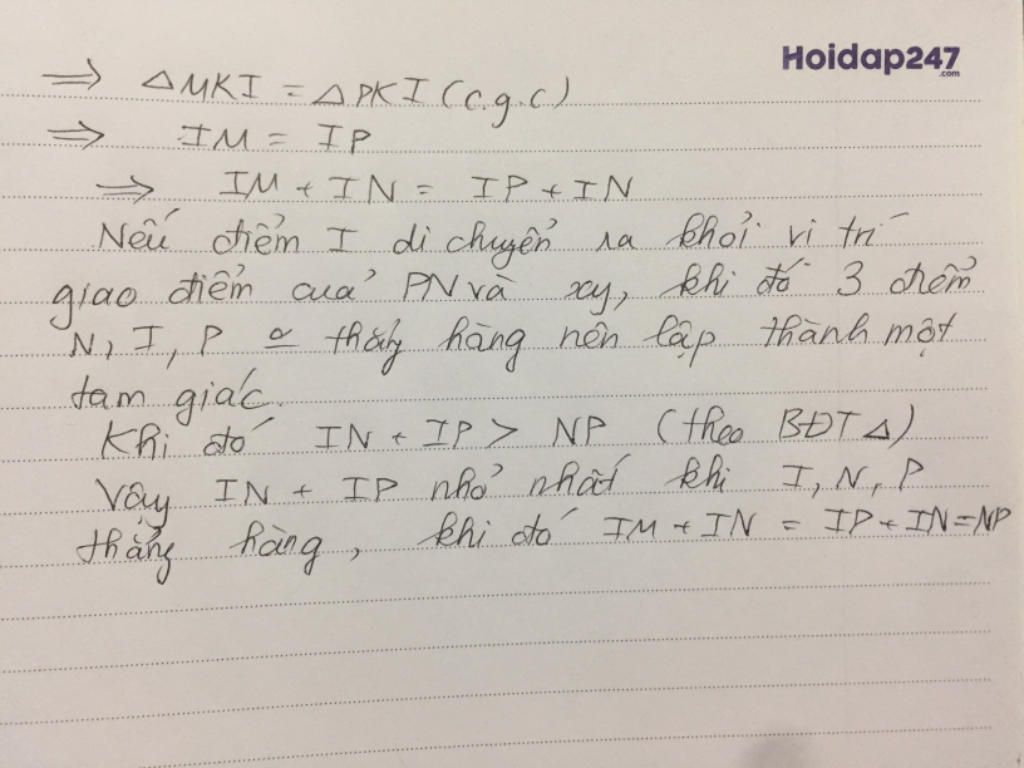 Hoidap247
.com
=> ΔMKI = ΔPKI (c.g.c)
=> IM = IP
=> IM + IN = IP + IN
Nếu điểm I di chuyển ra khỏi vị trí
giao điểm của PN và xy, khi đó 3 điểm
N, I, P thẳng hàng nên lập thành một
tam giác.
Khi đó IN + IP > NP (theo BĐT Δ)
Vậy IN + IP nhỏ nhất khi I, N, P
thẳng hàng, khi đó IM + IN = IP + IN = NP